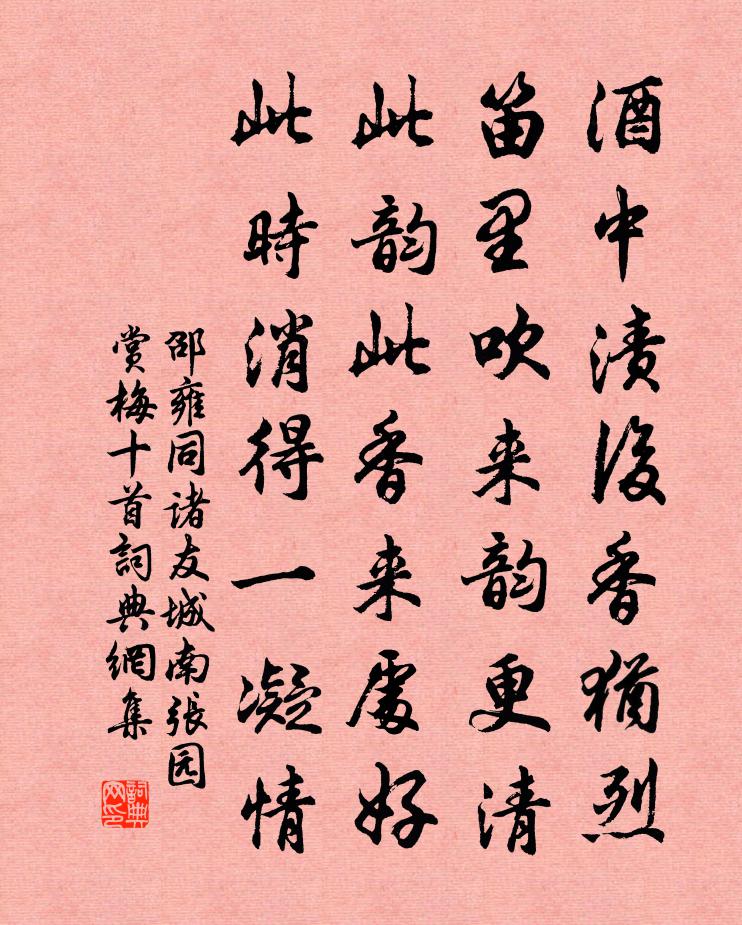 酒中漬後香猶烈
笛里吹来韵更清
此韵此香来處好
此時消得一凝情
邵雍同诸友城南張园
赏梅十首詞典網集
詞典
网印